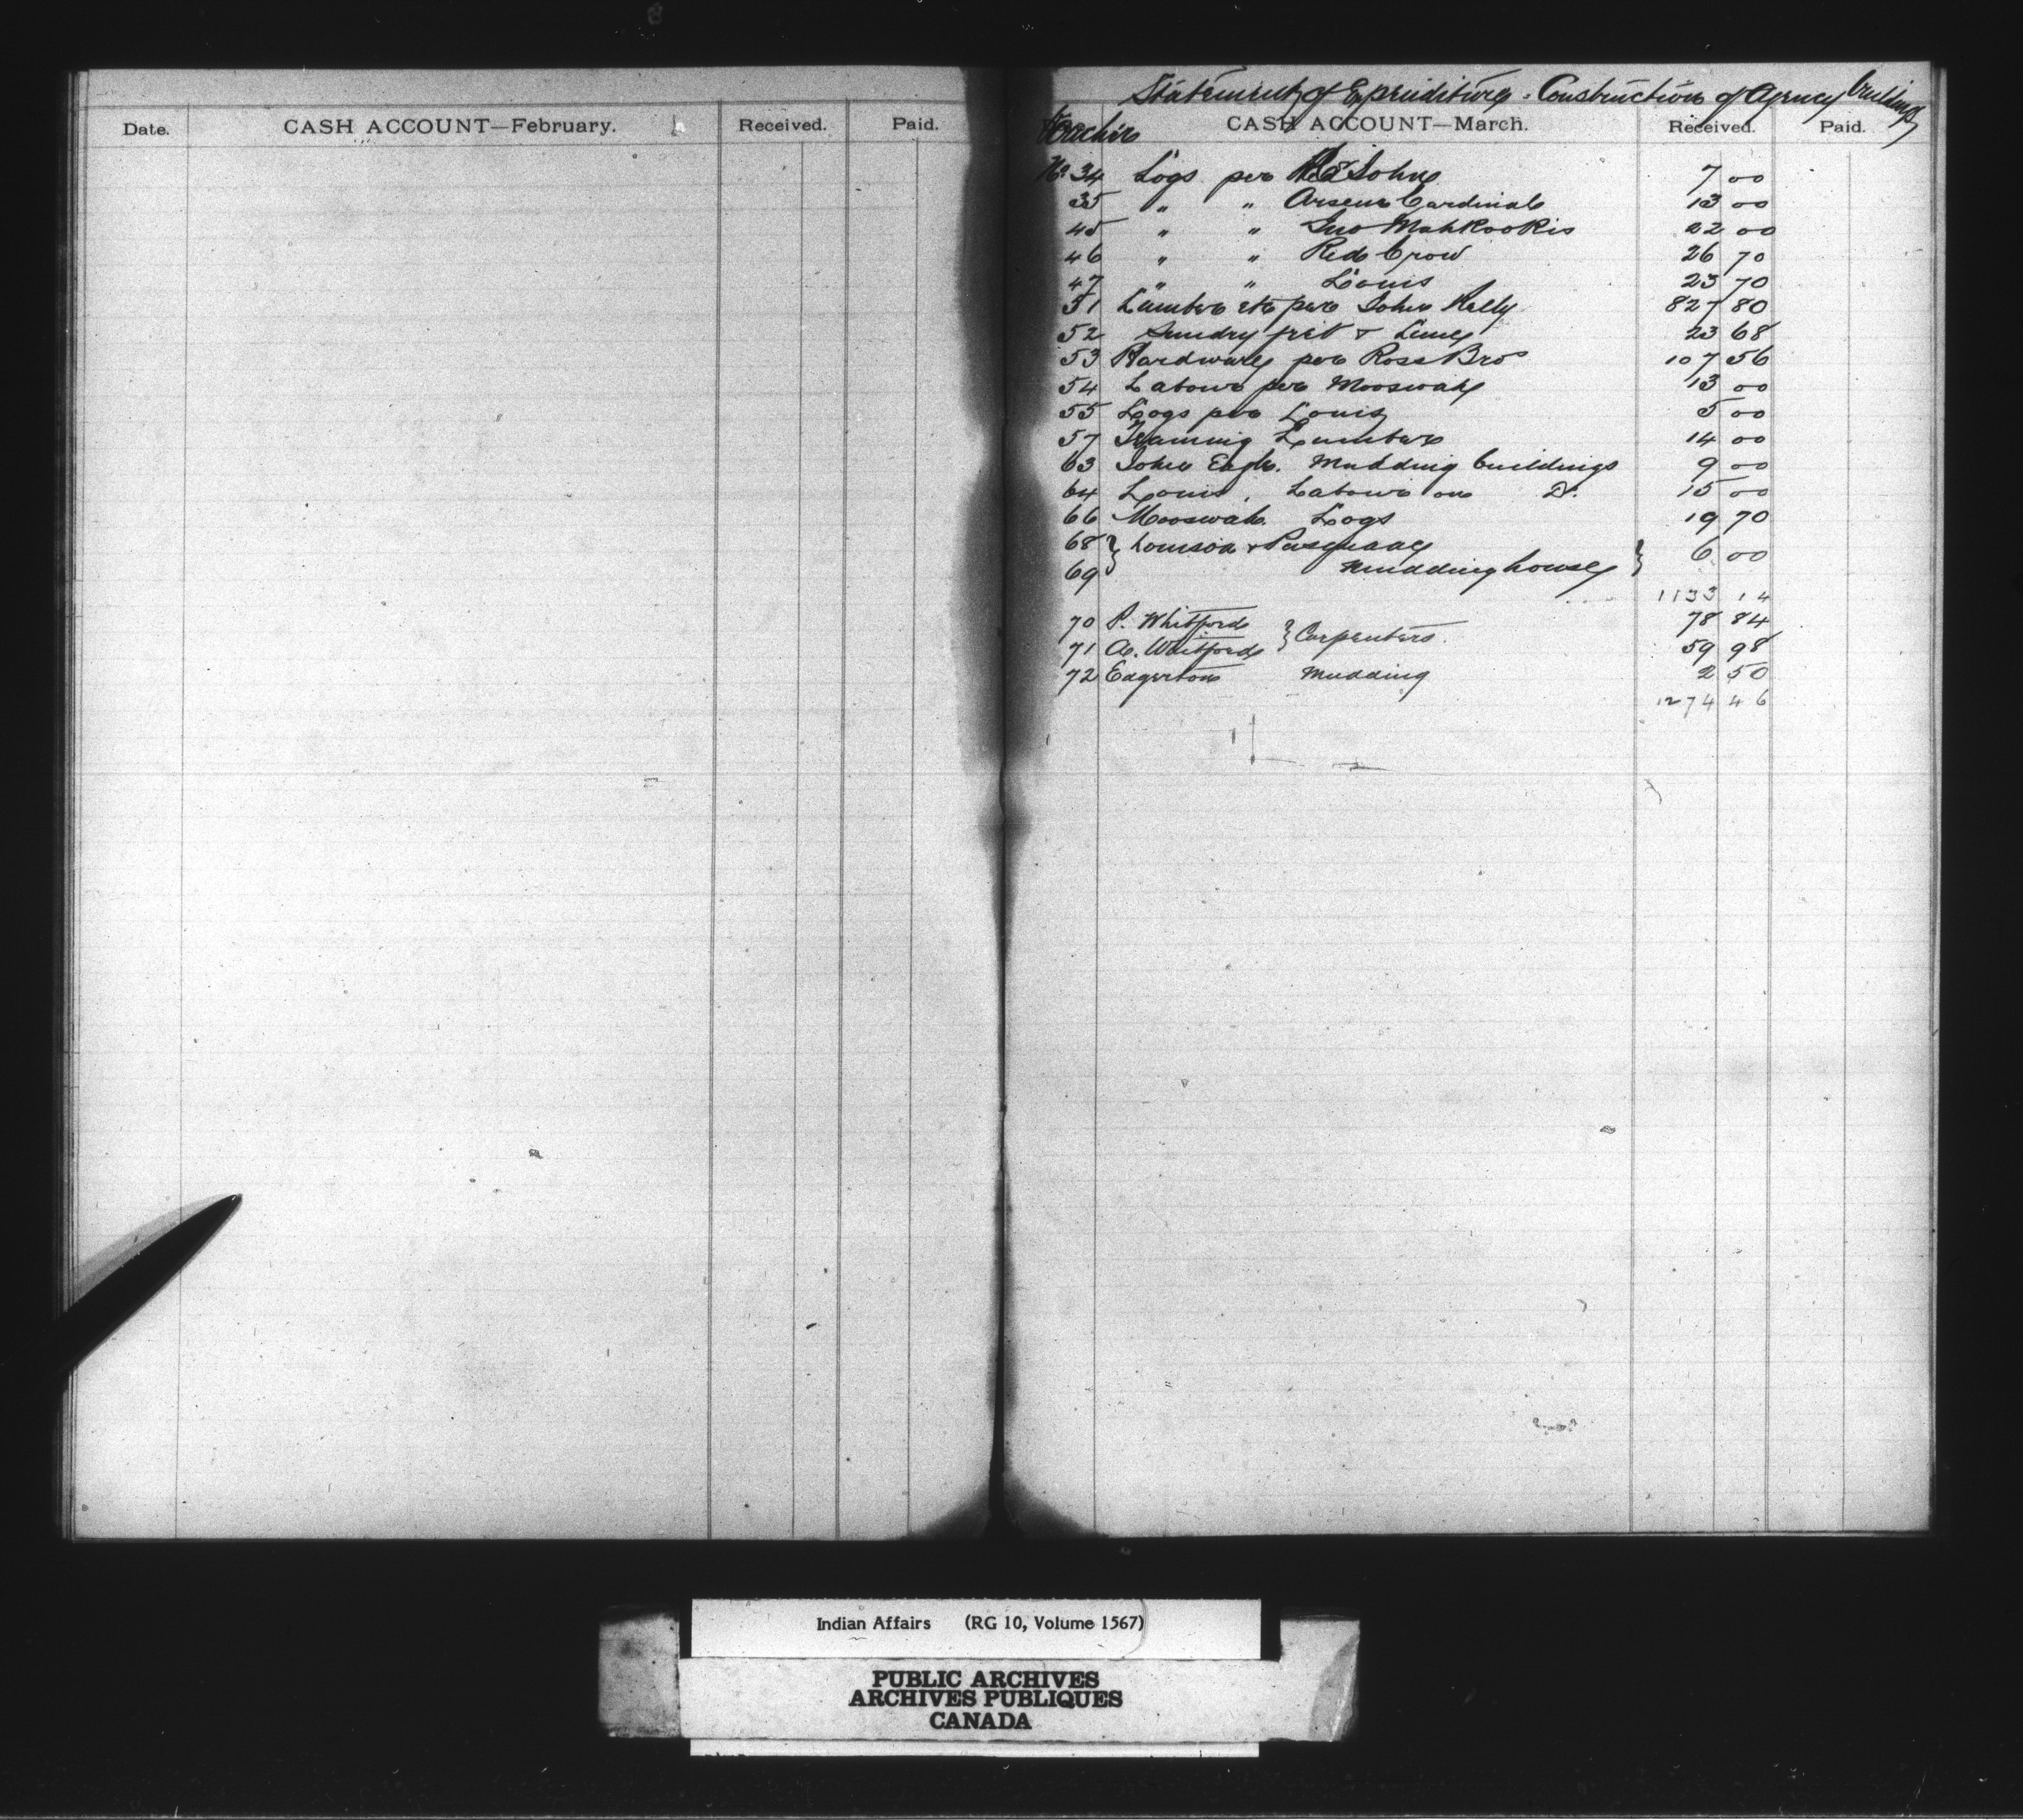 Date.
CASH ACCOUNT—February.
Received.
Paid.
Statement of Expenditure - Construction of Agency buildings
Voucher
CASH ACCOUNT—March.
Received.
Paid.
No 34 Logs per John 7 00
35 " " Arsene Cardinal 13 00
45 " " Jno Mahkookis 22 00
46 " " Red Crow 26 70
47 " " Louis 23 70
51 Lumber etc per John Kelly 827 80
52 Sundry frt & Lime 23 68
53 Hardware per Ross Bros 107 56
54 Labour per Mooswah 13 00
55 Logs per Louis 5 00
57 Teaming Lumber 14 00
63 John Eagle. Mudding buildings 9 00
64 Louis, Labour on Do. 15 00
66 Mooswah. Logs 19 70
68 } Louison &
69 Mudding house } 6 00
1133 14
70 P. Whitford } Carpenters. 78 84
71 A. Whitford 59 98
72 Edgerton Mudding 2 50
1274 46
Indian Affairs (RG 10, Volume 1567)
PUBLIC ARCHIVES
ARCHIVES PUBLIQUES
CANADA